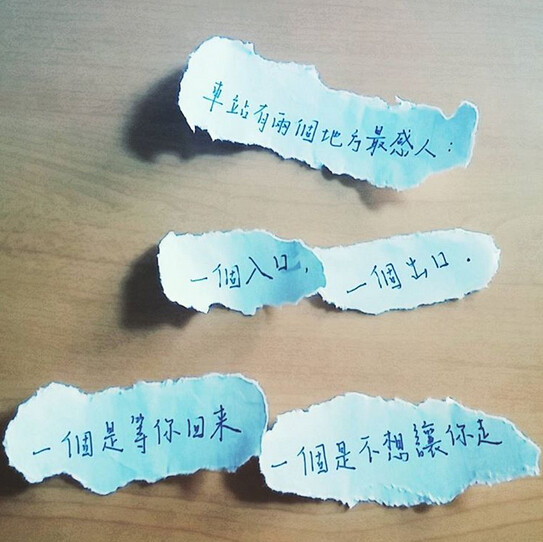 車站有兩個地方最感人：
一個入口，
一個出口．
一個是等你回来
一個是不想讓你走